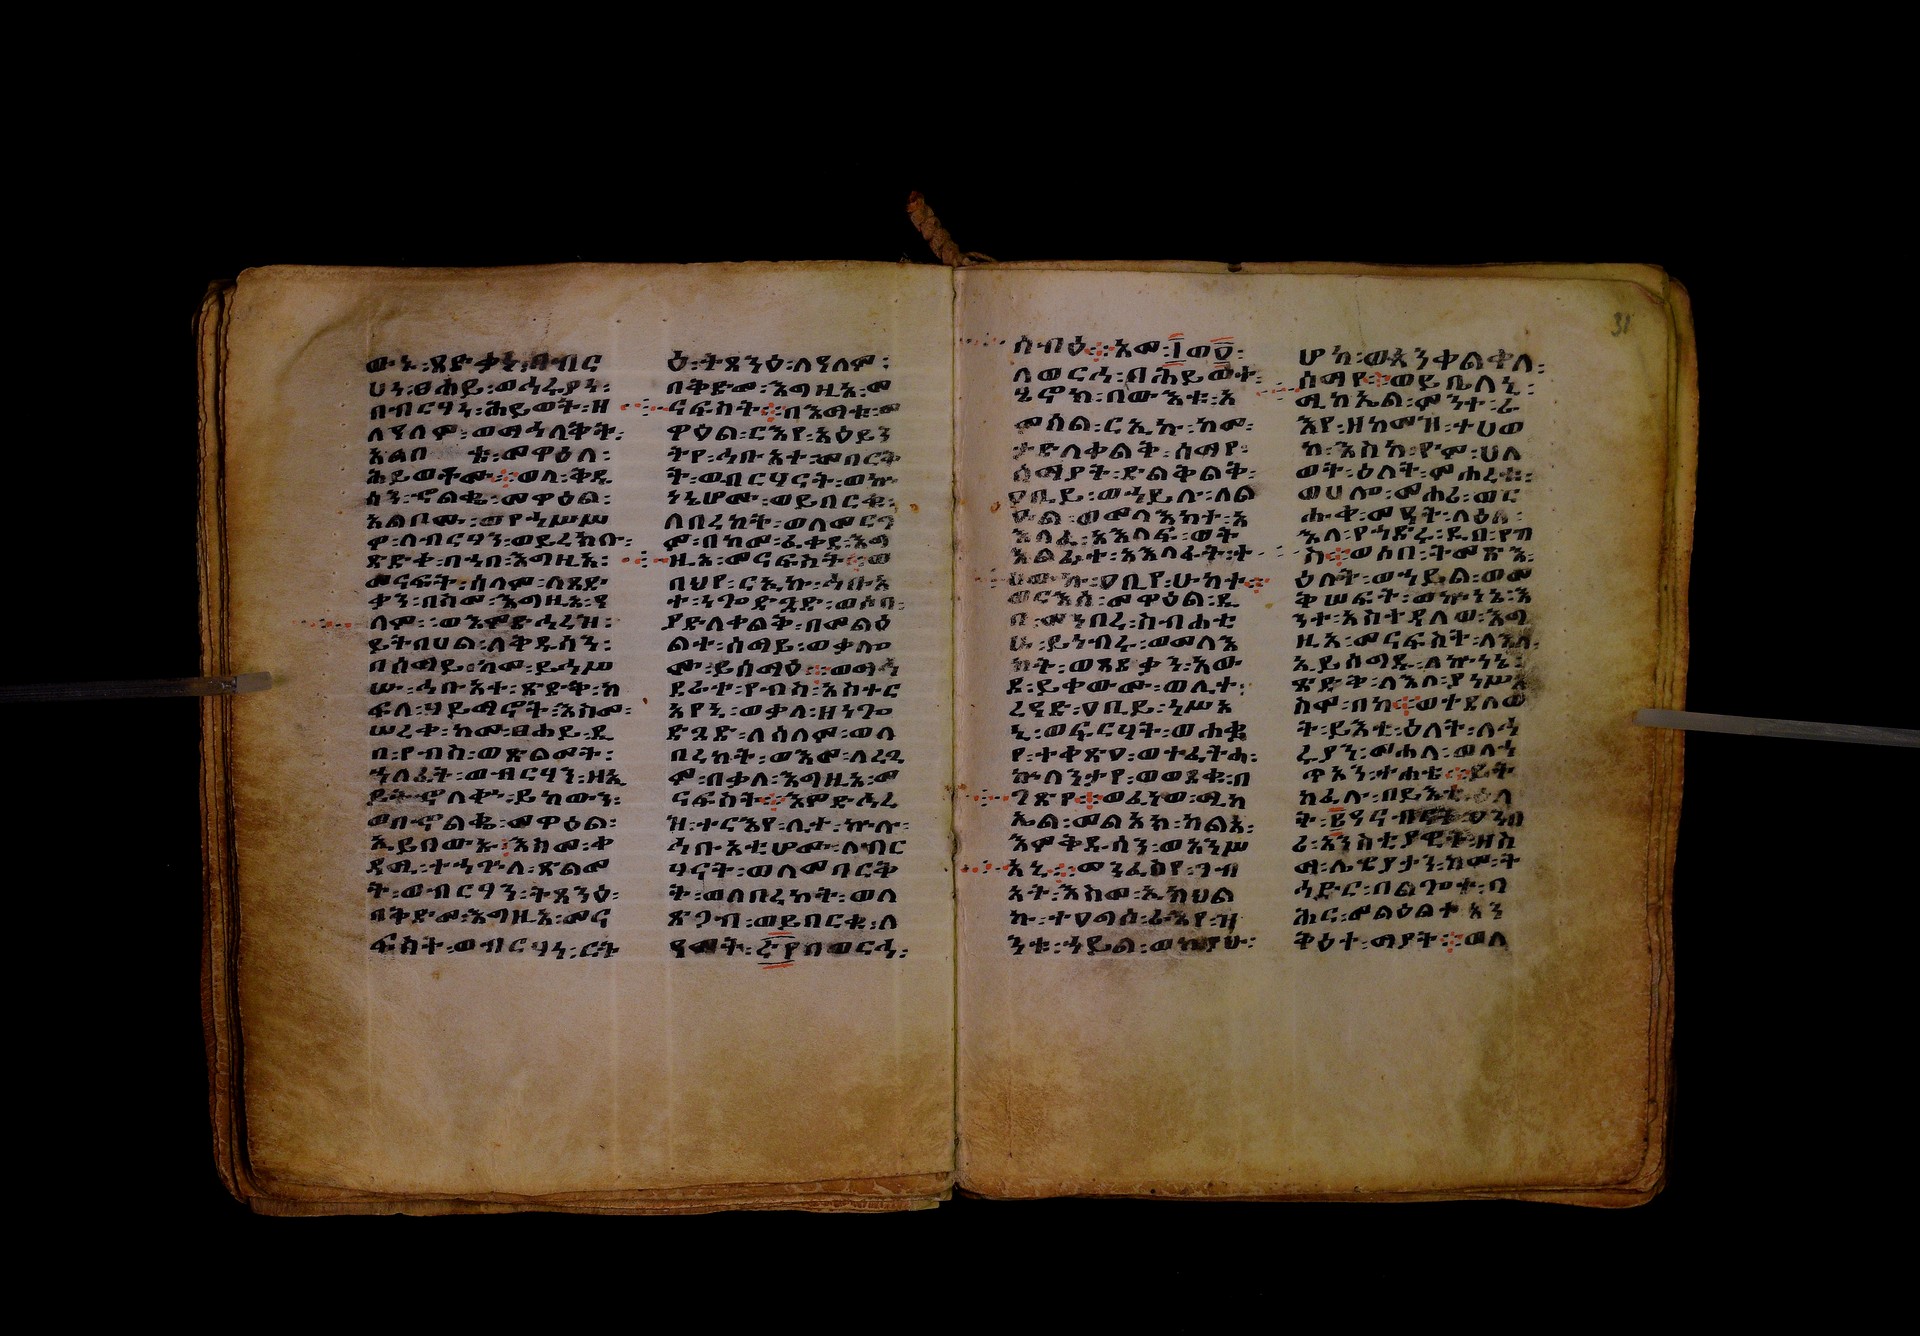 ውኑ፡ጻድቃኒ፡በብር
ሀነ፡ፀሐይ፡ወኅሩያን፡
በብርሃነ፡ሕይወት፡ዘ
ለዓለም፡ወማኅለቅት፡
አልቦ ቱ፡መዋዕለ፡
ሕይወቶሙ፡ወለ፡ቅዱ
ሳን፡ኆልቈ፡መዋዕል፡
አልቦሙ፡ወየኀሥሥ
ዎ፡ለብርሃን፡ወይረክቡ፡
ጽድቀ፡በኀበ፡እግዚአ፡
መናፍት፡ሰላም፡ለጻድ
ቃን፡በስመ፡እግዚአ፡ዓ
ለም፡ወእምድኅረዝ፡
ይትበሀል፡ለቅዱሳን፡
በሰማይ፡ከመ፡ይኅሥ
ሡ፡ኅቡአተ፡ጽድቅ፡ክ
ፍለ፡ሃይማኖት፡እስመ፡
ሠረቀ፡ከመ፡ፀሐይ፡ዲ
በ፡የብስ፡ወጽልመት፡
ኀለፈት፡ወብርሃን፡ዘኢ
ይትኆለቍ፡ይከውን፡
ወበኆልቈ፡መዋዕል፡
ኢይበውኡ፡እስመ፡ቀ
ዳሚ፡ተኀጕለ፡ጽልመ
ት፡ወብርሃን፡ትጸንዕ፡
በቅድመ፡እግዚአ፡መና
ፍስት፡ወብርሃነ፡ርት
ዕ፡ትጸንዕ፡ለዓለም፡
በቅድመ፡እግዚአ፡መ
ናፍስት፡በእማቱ፡መ
ዋዕል፡ርእየ፡አዕይን
ትየ፡ኅቡአተ፡መበርቅ
ት፡ወብርሃናት፡ወኵ
ነኔሆሙ፡ወይበርቁ፡
ለበረከት፡ወለመርገ
ም፡በከመ፡ፈቀደ፡እግ
ዚአ፡መናፍስት፡ወ
በህየ፡ርኢኩ፡ኅቡአ
ተ፡ነጐድጓድ፡ወሶበ፡
ያድለቀልቅ፡በመልዕ
ልተ፡ሰማይ፡ወቃሎ
ሙ፡ይሰማዕ፡ወማኅ
ደራተ፡የብስ፡አስተር
አየኒ፡ወቃለ፡ዘነጐ
ድጓድ፡ለሰላም፡ወለ
በረከት፡ወእመ፡ለረጊ
ም፡በቃለ፡እግዚአ፡መ
ናፍስት፡እምድኅረ
ዝ፡ተርእየ፡ሊተ፡ኵሉ፡
ኅቡአቲሆሙ፡ለብር
ሃናት፡ወለመባርቅ
ት፡ወለበረከት፡ወለ
ጽጋብ፡ወይበርቁ፡ለ
በወርኅ፡
ሳብዕ፡አመ፡፲ወ፬፡
ለወርኅ፡በሕይወተ፡
ሄኖክ፡በውእቱ፡አ
ምሳል፡ርኢኩ፡ከመ፡
ያድለቀልቅ፡ሰማየ፡
ሰማያት፡ድልቅልቅ፡
ዐቢይ፡ወኀይለ፡ልዑል
ወመላእክተ፡አ
እላፈ፡አእላፍ፡ወት
እልፊተ፡አእላፋት፡ተ
ሀውኩ፡ዐቢየ፡ሁከተ፡
ወርእሰ፡መዋዕል፡ዲ
በ፡መንበረ፡ስብሐቲ
ሁ፡ይነብር፡ወመላእ
ክት፡ወጻድቃን፡አው
ደ፡ይቀውሙ፡ወሊተ፡
ረዓድ፡ዐቢይ፡ነሥአ
ኒ፡ወፍርሃት፡ወሐቌ
የ፡ተቀጽዐ፡ወተፈትሐ፡
ኵለንታየ፡ወወደቁ፡በ
ገጽየ፡ወፈነወ፡ሚክ
ኤል፡መልአክ፡ካልእ፡
እምቅዱሳን፡ወአንሥ
አኒ፡መንፈስየ፡ገብ
አት፡እስመ፡ኢክህል
ኩ፡ተዐግሶ፡ራእየ፡ዝ
ንቱ፡ኀይል፡
ሆከ፡ወአንቀልቀለ፡
ሰማየ፡ወይቤለኒ፡
ሚካኤል፡ምንተ፡ራ
እየ፡ዘከመዝ፡ተሀወ
ከ፡እስከ፡የም፡ሀለ
ወት፡ዕለት፡ምሕረቱ፡
ወሀሎ፡መሐሪ፡ወር
ሑቀ፡መዓት፡ለዕለ፡
እለ፡የኀድሩ፡ዲበ፡የብ
ስ፡ወሶበ፡ትመጽእ፡
ዕለት፡ወኀይል፡ወመ
ቅሠፍት፡ወኵነኔ፡እ
ንተ፡አስተዳለወ፡እግ
ዚአ፡መናፍስት፡ለእለ፡
ኢይሰግዱ፡ለኵነኔ፡
ጽድቅ፡
ስሞ፡በከ፡ወተደለወ
ት፡ይእቲ፡ዕለት፡ለኅ
ሩያን፡መሐለ፡ወለኀ
ጥአን፡ተሐቲ፡ይት
ከፈሉ፡በይእቲ፡ዕለ
ት፡፪ዓናብርት፡ዐንበ
ሪ፡አንስቲያዊት፡ዘስ
ማ፡ሌዋያታን፡ከመ፡ት
ኅድር፡በልጐተ፡ባ
ሕር፡መልዕልተ፡አን
ቅዕተ፡ማያት፡ወለ